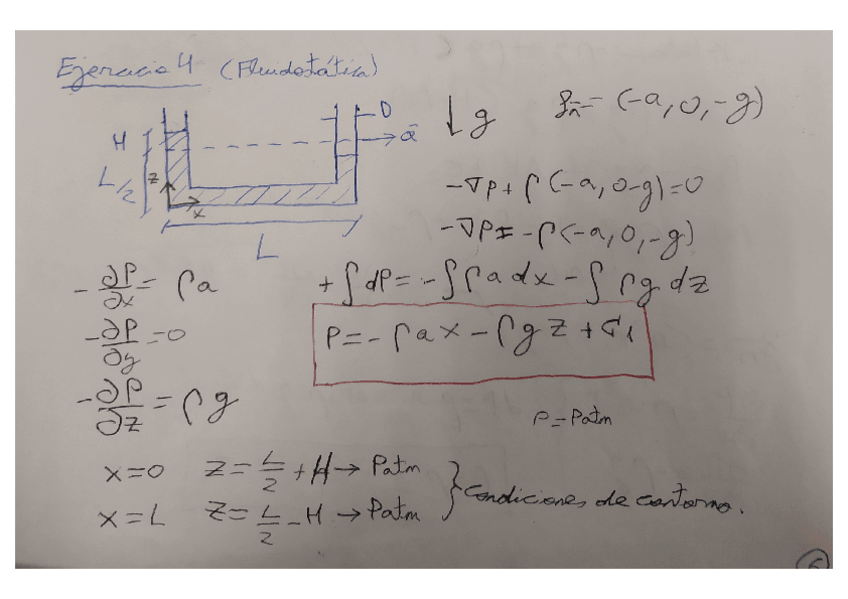 Ejercicio 4 (Fluidostática)
D
H
a⃗
L/2
z
x
L
↓ g
f_m = (-a, 0, -g)
-∇P + ρ (-a, 0 -g) = 0
-∇P = -ρ (-a, 0, -g)
-∂P/∂x = ρa
+∫dP = -∫ρa dx - ∫ρg dz
-∂P/∂y = 0
P = -ρax - ρgz + C₁
-∂P/∂z = ρg
P = Patm
x=0 z = L/2 + H → Patm
x=L z = L/2 - H → Patm
} condiciones de contorno.